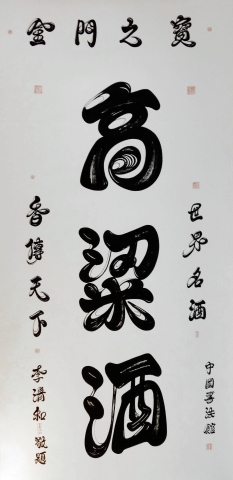 金門之寶
高粱酒
世界名酒
中国書法館
香傳天下
李和敬題